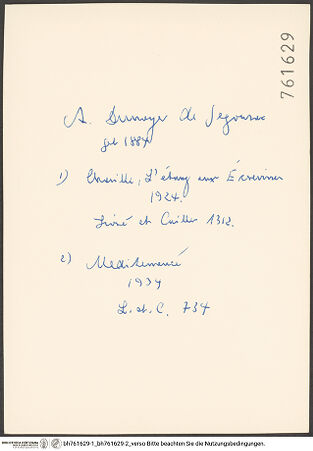 761629
A. Dunoyer de Segonzac
geb 1884
1) Chaville, L'étang aux Écrevisses
1924.
Lioré et Cailler 1312.
2) Mediterranée
1934
L. et. C. 734
bh761629-1_bh761629 2_verso Bitte beachten Sie die Nutzungsbedingungen.